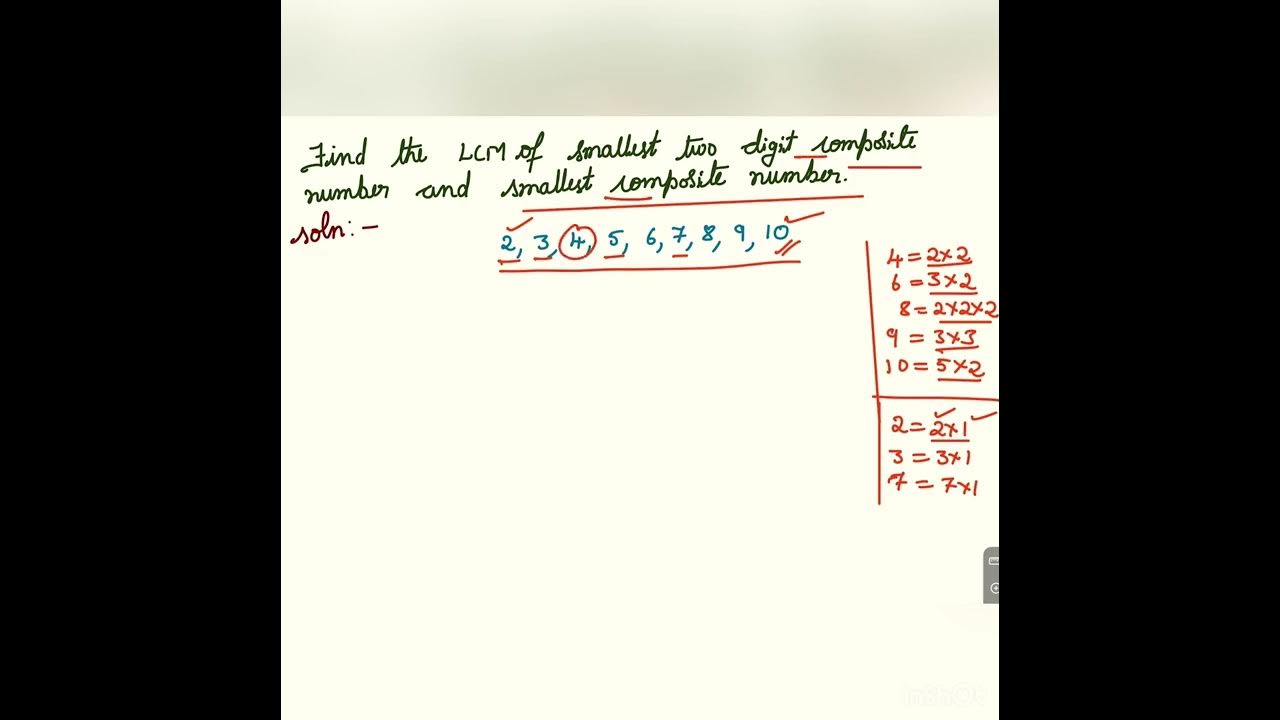 Find the LCM of smallest two digit composite
number and smallest composite number.
soln:-
2, 3, 4, 5, 6, 7, 8, 9, 10
4 = 2×2
6 = 3×2
8 = 2×2×2
9 = 3×3
10 = 5×2
2 = 2×1
3 = 3×1
7 = 7×1
InShOt